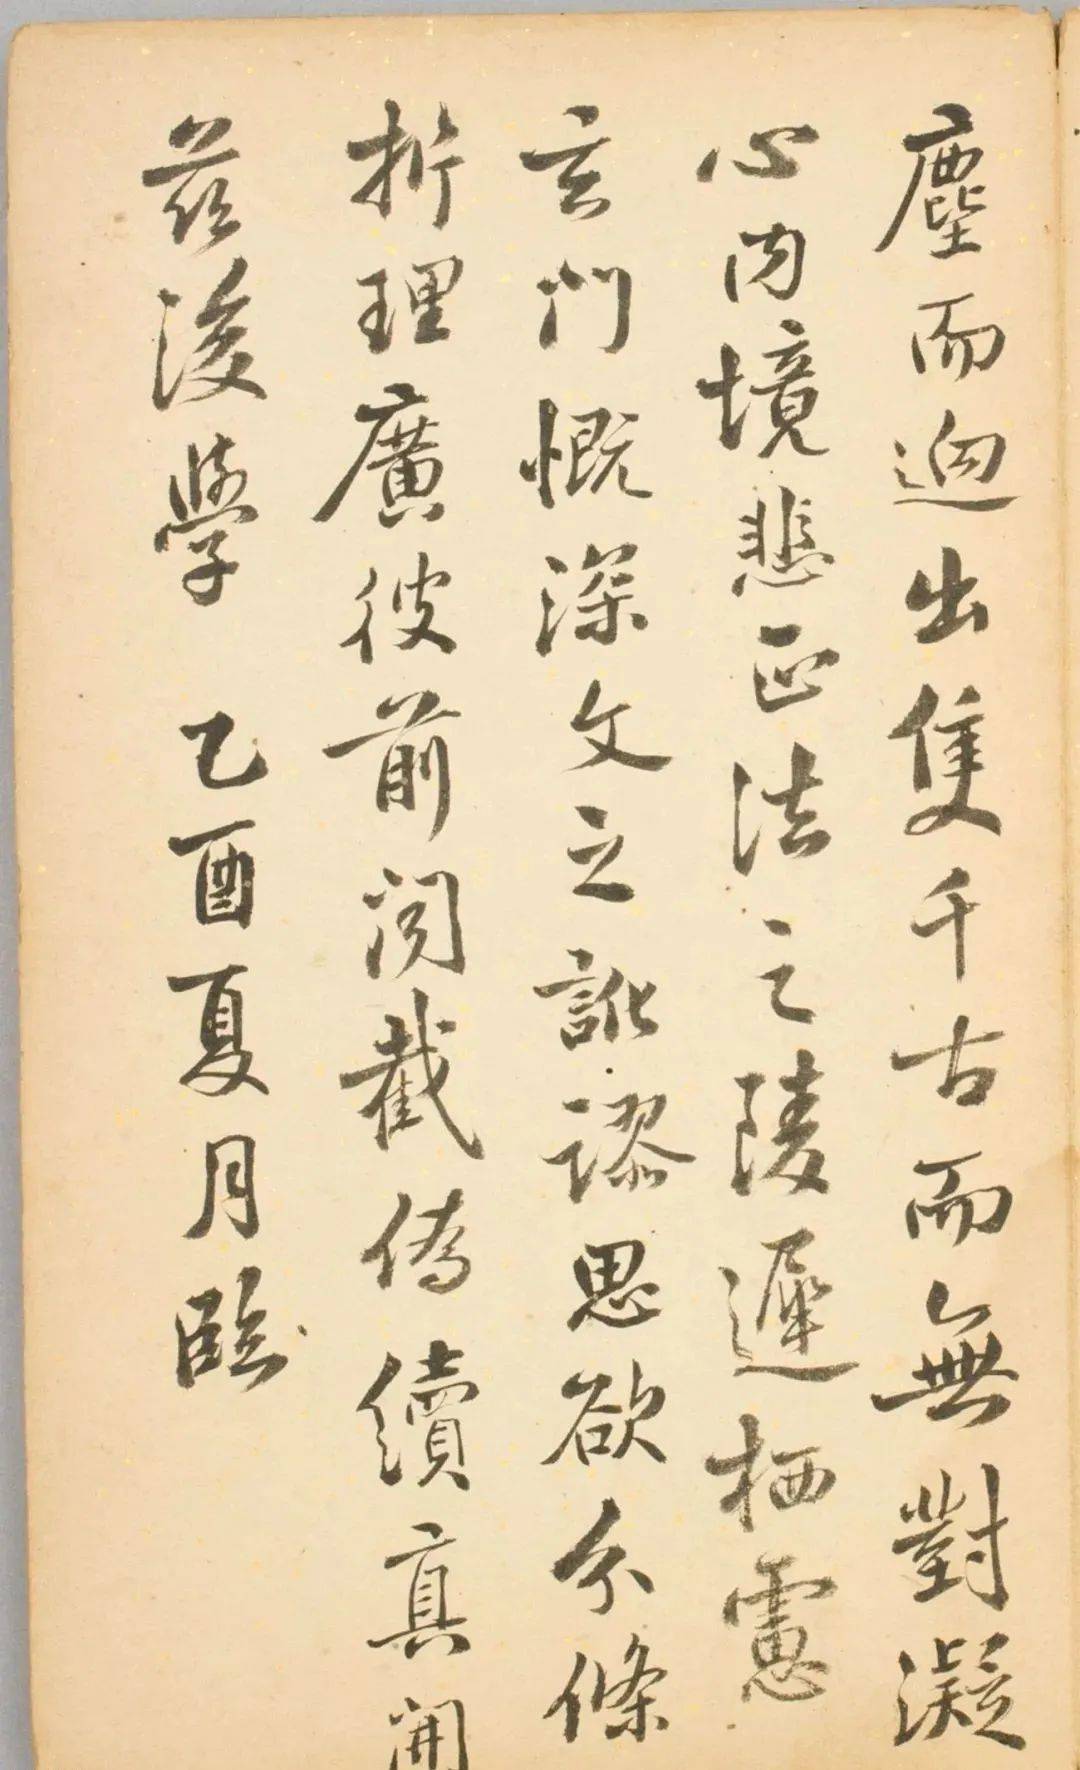 塵而迥出隻千古而無對凝
心內境悲正法之陵遲栖慮
玄門慨深文之訛謬思欲分條
析理廣彼前聞截偽續真開
茲後學 乙酉夏月臨